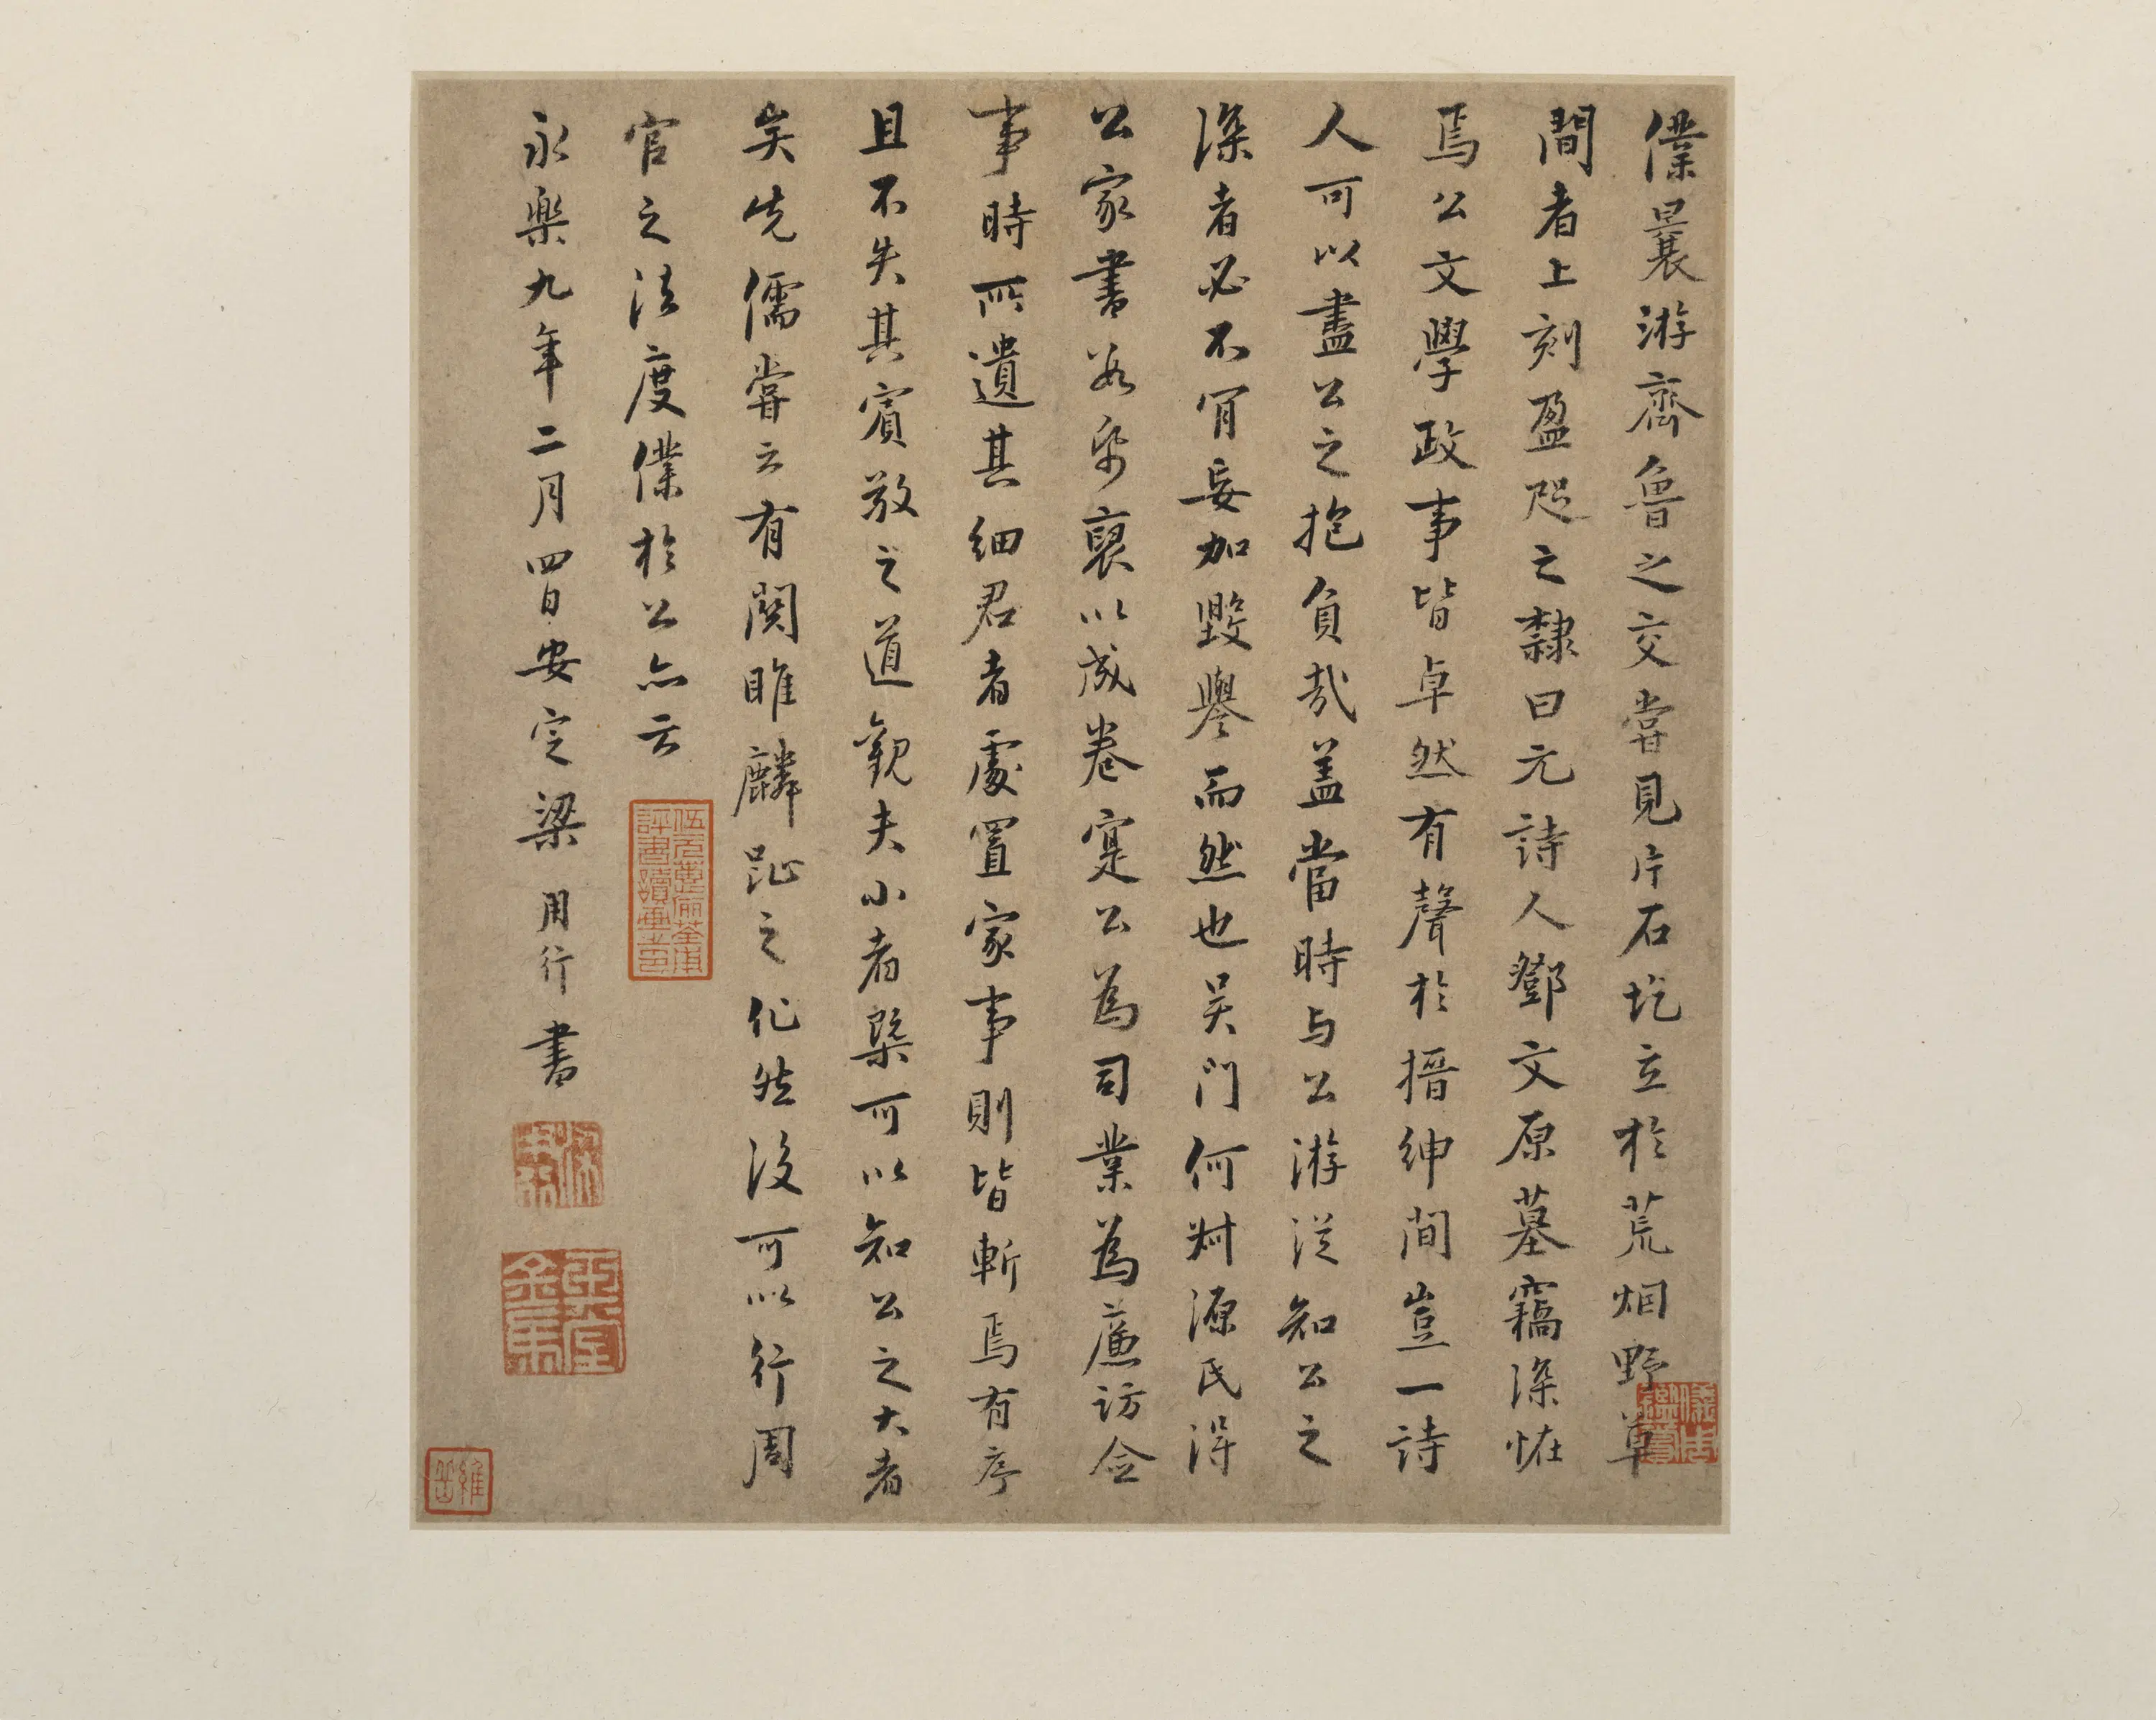 僕曩游齊魯之交嘗見片石圪立於荒烟野草
間者上刻盈咫之隸曰元詩人鄧文原墓竊深恠
焉公文學政事皆卓然有聲於搢紳間豈一詩
人可以盡公之抱負哉盖當時与公游従知公之
深者必不肎妄加毀譽而然也吴門何尌源氏得
公家書若干裒以成卷寔公為司業為亷訪僉
事時所遺其細君者處置家事則皆斬焉有序
且不失其賓敬之道觀夫小者槩可以知公之大者
矣先儒嘗云有関睢麟趾之化然後可以行周
官之法度僕於公亦云
永樂九年二月四日安定梁用行書